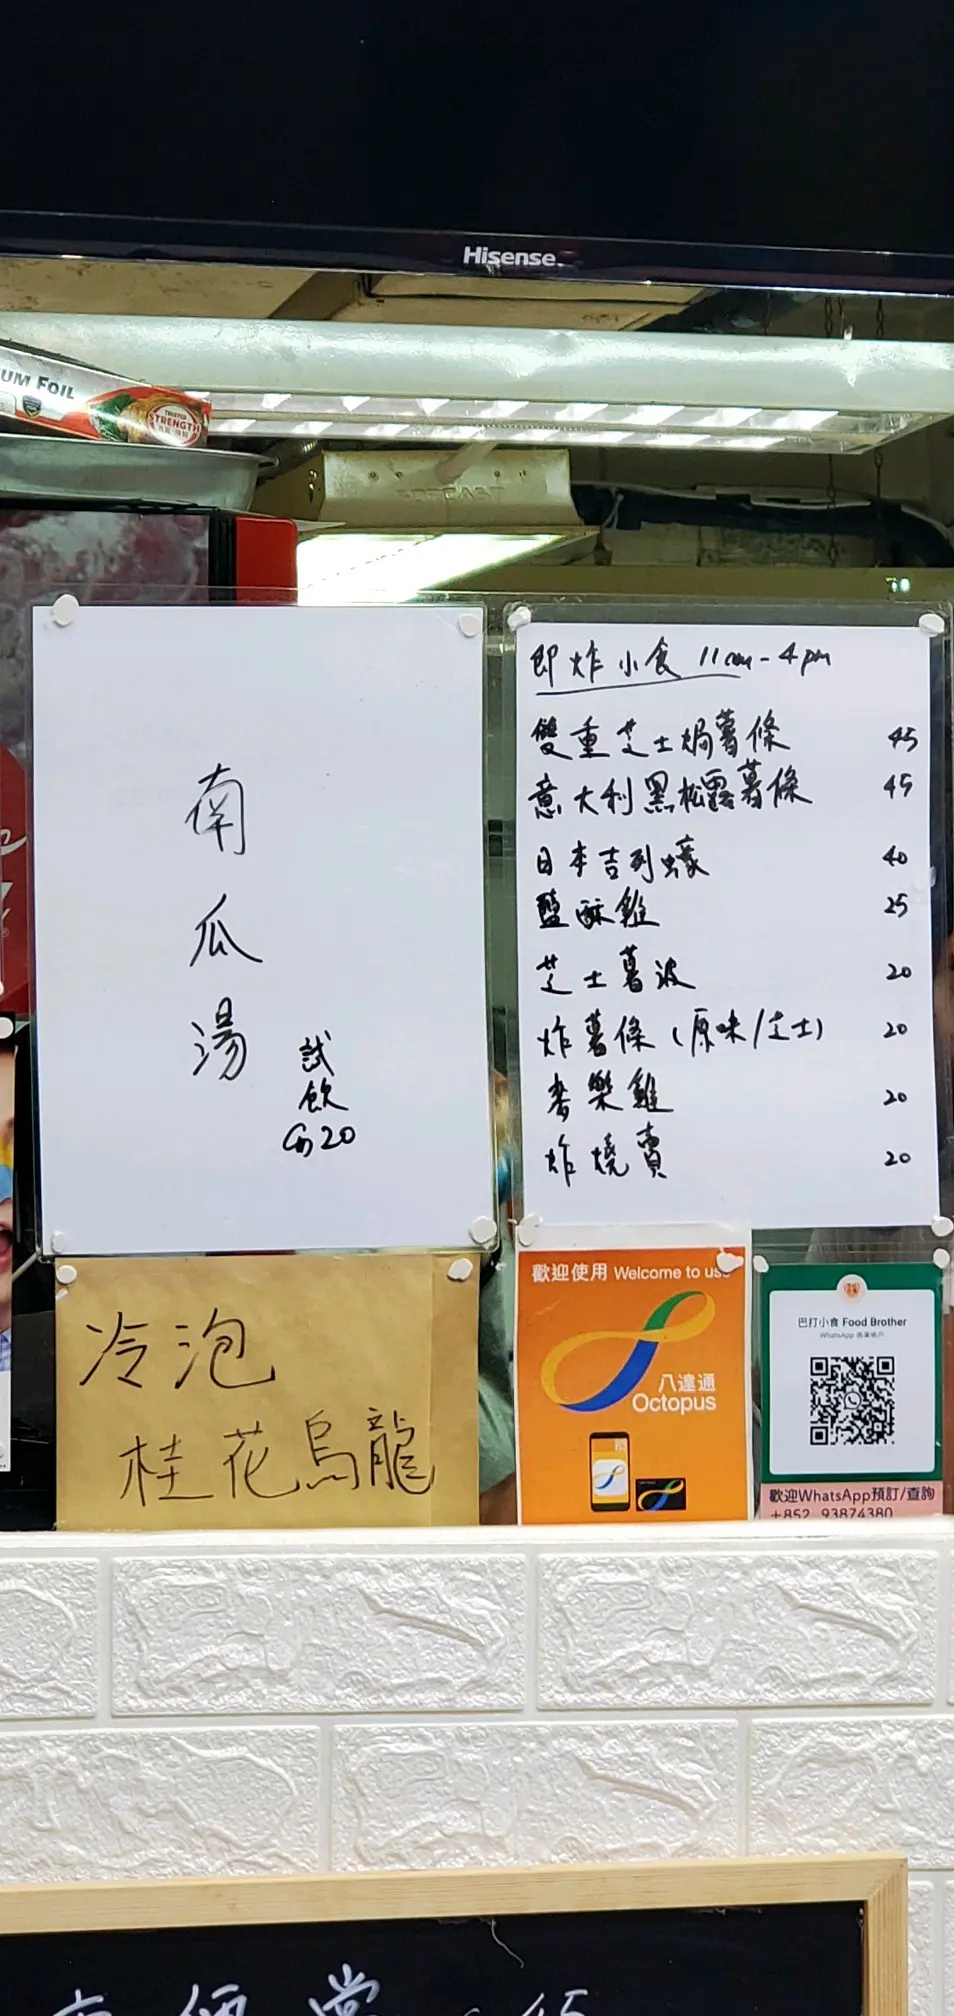 Hisense
UM FOIL
TRUSTED
STRENGTH
南
瓜
湯
試
飲
@20
即炸小食 11am-4pm
雙重芝士焗薯條 45
意大利黑松露薯條 45
日本吉列蠔 40
鹽酥雞 25
芝士薯波 20
炸薯條(原味/芝士) 20
麥樂雞 20
炸燒賣 20
冷泡
桂花烏龍
歡迎使用 Welcome to use
八達通
Octopus
巴打小食 Food Brother
WhatsApp 商業帳戶
歡迎WhatsApp預訂/查詢
+852 93874380